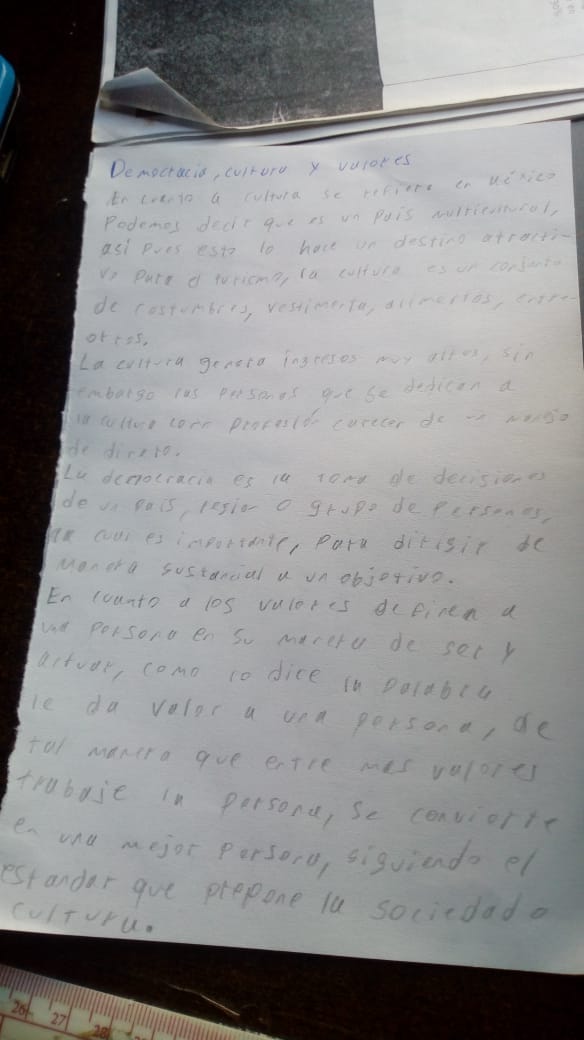 Democracia, cultura y valores
En cuanto a cultura se refiere en México
Podemos decir que es un país multicultural,
así pues esto lo hace un destino atracti-
vo para el turismo, la cultura es un conjunto
de costumbres, vestimenta, alimentos, entre
otros.
La cultura genera ingresos muy altos, sin
embargo las personas que se dedican a
la cultura como profesión carecen de un manejo
de dinero.
La democracia es la toma de decisiones
de un país, region o grupo de personas,
la cual es importante, para dirigir de
manera sustancial a un objetivo.
En cuanto a los valores definen a
una persona en su manera de ser y
actuar, como lo dice la palabra
le da valor a una persona, de
tal manera que entre mas valores
trabaje la persona, se convierte
en una mejor persona, siguiendo el
estandar que propone la sociedad o
cultura.
26 27 28